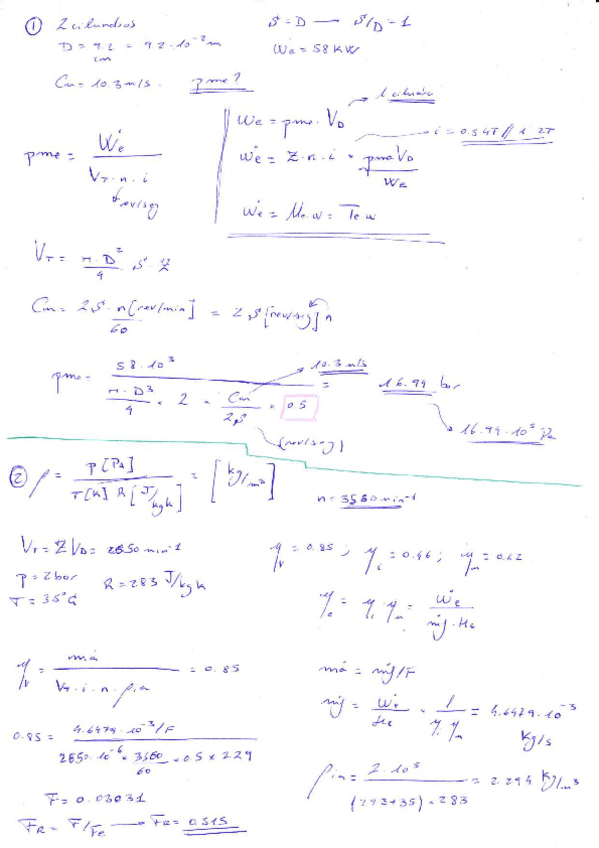 ① 2 cilindros
D = 9.2 cm = 9.2·10⁻² m
Cm = 10.3 m/s. pme?
S = D → S/D = 1
Ẇe = 58 KW
pme = Ẇe / (V_T · n · i)
rev/seg
We = pme · V_D → 1 cilindro
Ẇe = Z · n · i · pme V_D → i = 0.5 4T // 1 2T
We
Ẇe = Me · ω = Te ω
V_T = π·D²/4 · S · Z
Cm = 2S · n[rev/min] / 60 = 2S [rev/sig] n
pme = 58·10³ / (π·D³/4 × 2 × Cm/2S × 0.5) = 16.99 bar
10.3 m/s
(rev/seg)
16.99·10⁵ Pa
② ρ = P[Pa] / (T[K] R[J/kgK]) = [kg/m³]
n = 3560 min⁻¹
V_T = Z V_D = 2850 min⁻¹
P = 2bar R = 283 J/kgK
T = 35°C
η_v = 0.85 ; η_i = 0.46 ; η_m = 0.62
η_e = η_i η_m = Ẇe / (ṁf · Hc)
η_v = ṁa / (V_T · i · n · ρin) = 0.85
ṁa = ṁf/F
ṁf = Ẇe/Hc × 1/(η_i η_m) = 4.6479·10⁻³ Kg/s
0.85 = (4.6479·10⁻³/F) / (2850·10⁻⁶ × 3560/60 × 0.5 × 2.29)
ρin = 2·10⁵ / ((273+35)·283) = 2.294 Kg/m³
F = 0.03031
F_R = F/Fe → F_R = 0.515